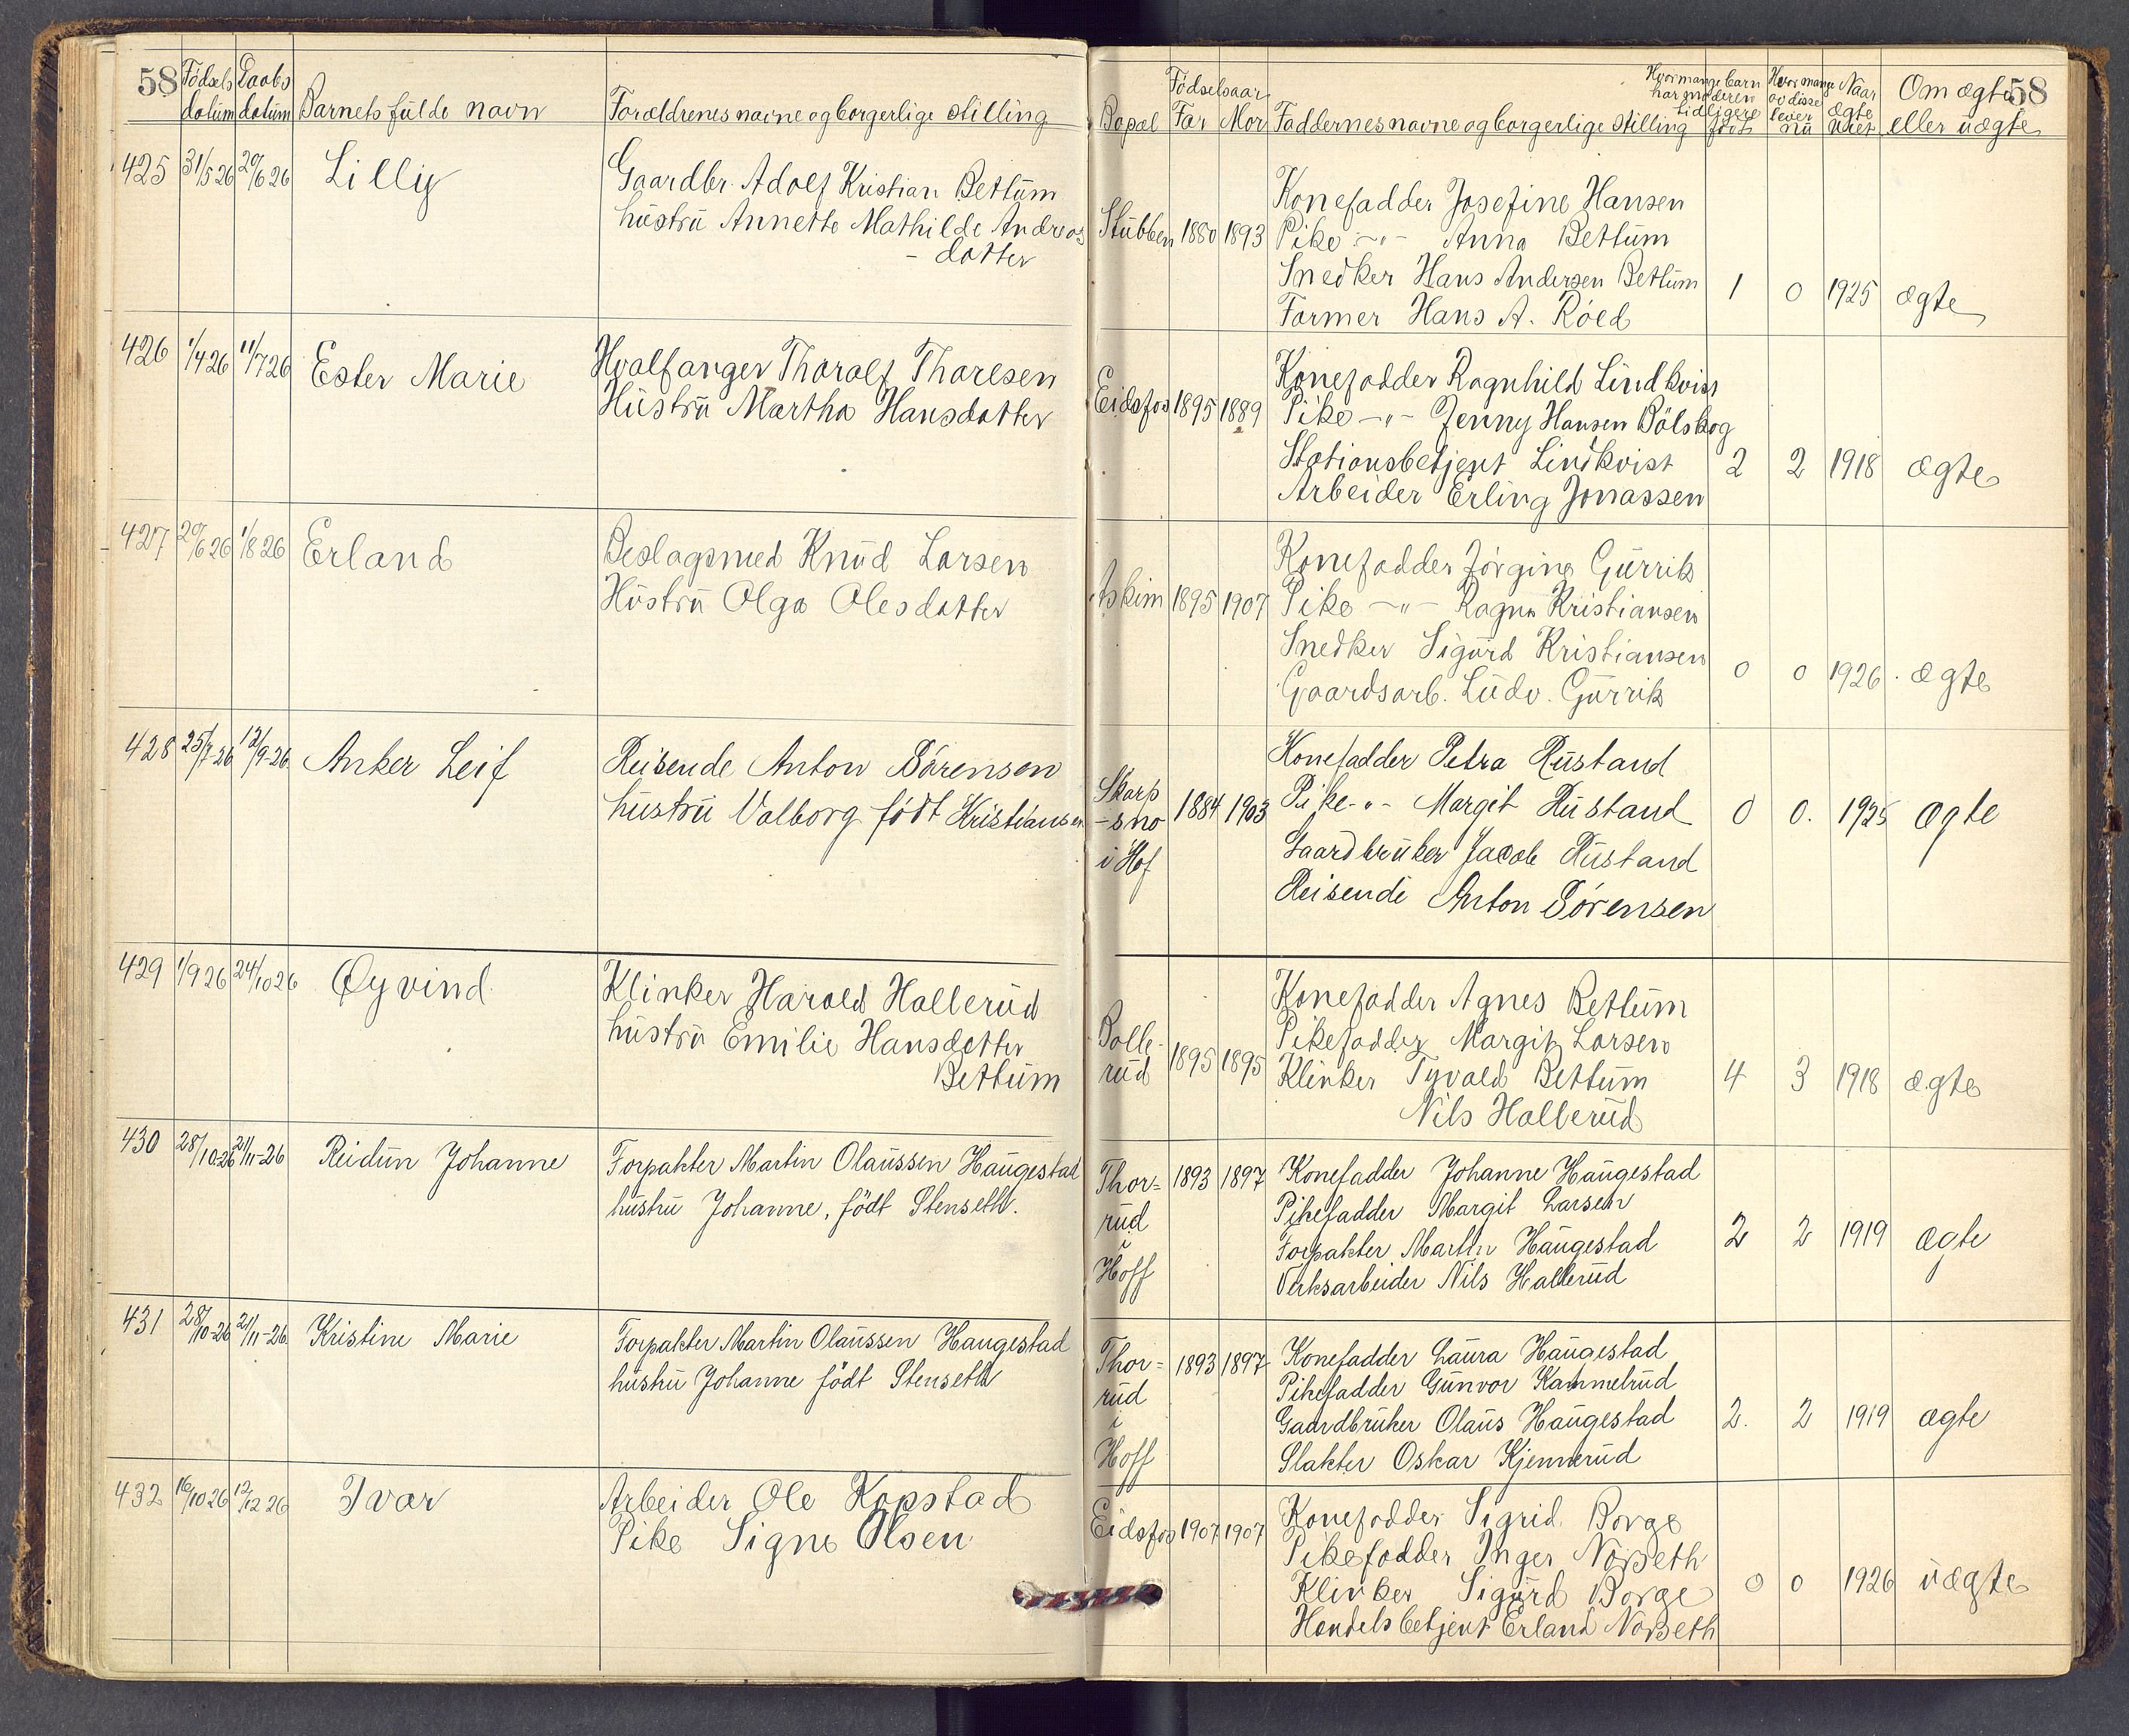 58
Fødsels Daabs
datum datum Barnets fulde navn Forældrenes navne og borgerlige stilling
425 31/5 26 20/6 26 Lilly Gaardbr. Adolf Kristian Bettum
hustru Annette Mathilde Andreas
- datter
426 1/4 26 11/7 26 Ester Marie Hvalfanger Tharalf Tharlsen
Hustru Martha Hansdatter
427 20/6 26 1/8 26 Erland Beslagsmed Knud Larsen
Hustru Olga Olesdatter
428 25/7-26 12/9-26 Anker Leif Reisende Anton Sørensen
hustru Valborg født Kristiansen
429 1/9 26 24/10 26 Øyvind Klinker Harald Hallerud
hustru Emilie Hansdatter
Bettum
430 28/10-26 21/11-26 Reidun Johanne Forpakter Martin Olaussen Haugestad
hustru Johanne, født Stenseth.
431 28/10-26 21/11-26 Kristine Marie Forpakter Martin Olaussen Haugestad
hustru Johanne født Stenseth
432 16/10 26 12/12 26 Ivar Arbeider Ole Kopstad
Pike Signe Olsen
58
Fødselsaar Hvor mange barn har moderen tidligere født Hvor mange av disse lever nu Naar ægte viet Om ægte
Bopæl Far Mor Faddernes navne og borgerlige stilling eller uægte
Konefadder Josefine Hansen
Stubben 1880 1893 Pike -"- Anna Bettum
Snedker Hans Andersen Bettum 1 0 1925 ægte
Former Hans A. Røed
Konefadder Ragnhild Lindkvist
Eidsfos 1895 1889 Pike -"- Jenny Hansen Bølskog
Stationsbetjent Lindkvist 2 2 1918 ægte
Arbeider Erling Jonassen
Konefadder Jørgine Gurrik
Askim 1895 1907 Pike -"- Ragna Kristiansen
Snedker Sigurd Kristiansen 0 0 1926 . ægte
Gaardsarb. Ludv. Gurrik
Konefadder Petra Rustand
Skarp
-sno 1884 1903 Pike -"- Margit Rustand 0 0. 1925 ægte
i Hof Gaardbruker Jacob Rustand
Reisende Anton Sørensen
Konefadder Agnes Bettum
Bolle- Pikefadder Margit Larsen
rud 1895 1895 Klinker Tyvald Bettum 4 3 1918 ægte
Nils Hallerud
Thor= 1893 1897 Konefadder Johanne Haugestad
rud Pikefadder Margit Larsen
i Forpakter Martin Haugestad 2 2 1919 ægte
Hoff Verksarbeider Nils Hallerud
Thor= 1893 1897 Konefadder Laura Haugestad
rud Pikefadder Gunvor Kammelrud
i Gaardbruker Olaus Haugestad 2. 2 1919 ægte
Hoff Slakter Oskar Kjennerud
Eidsfos 1907 1907 Konefadder Sigrid Borge
Pikefadder Inger Nøsseth
Klinker Sigurd Borge 0 0 1926 uægte
Handelsbetjent Erland Nøsseth